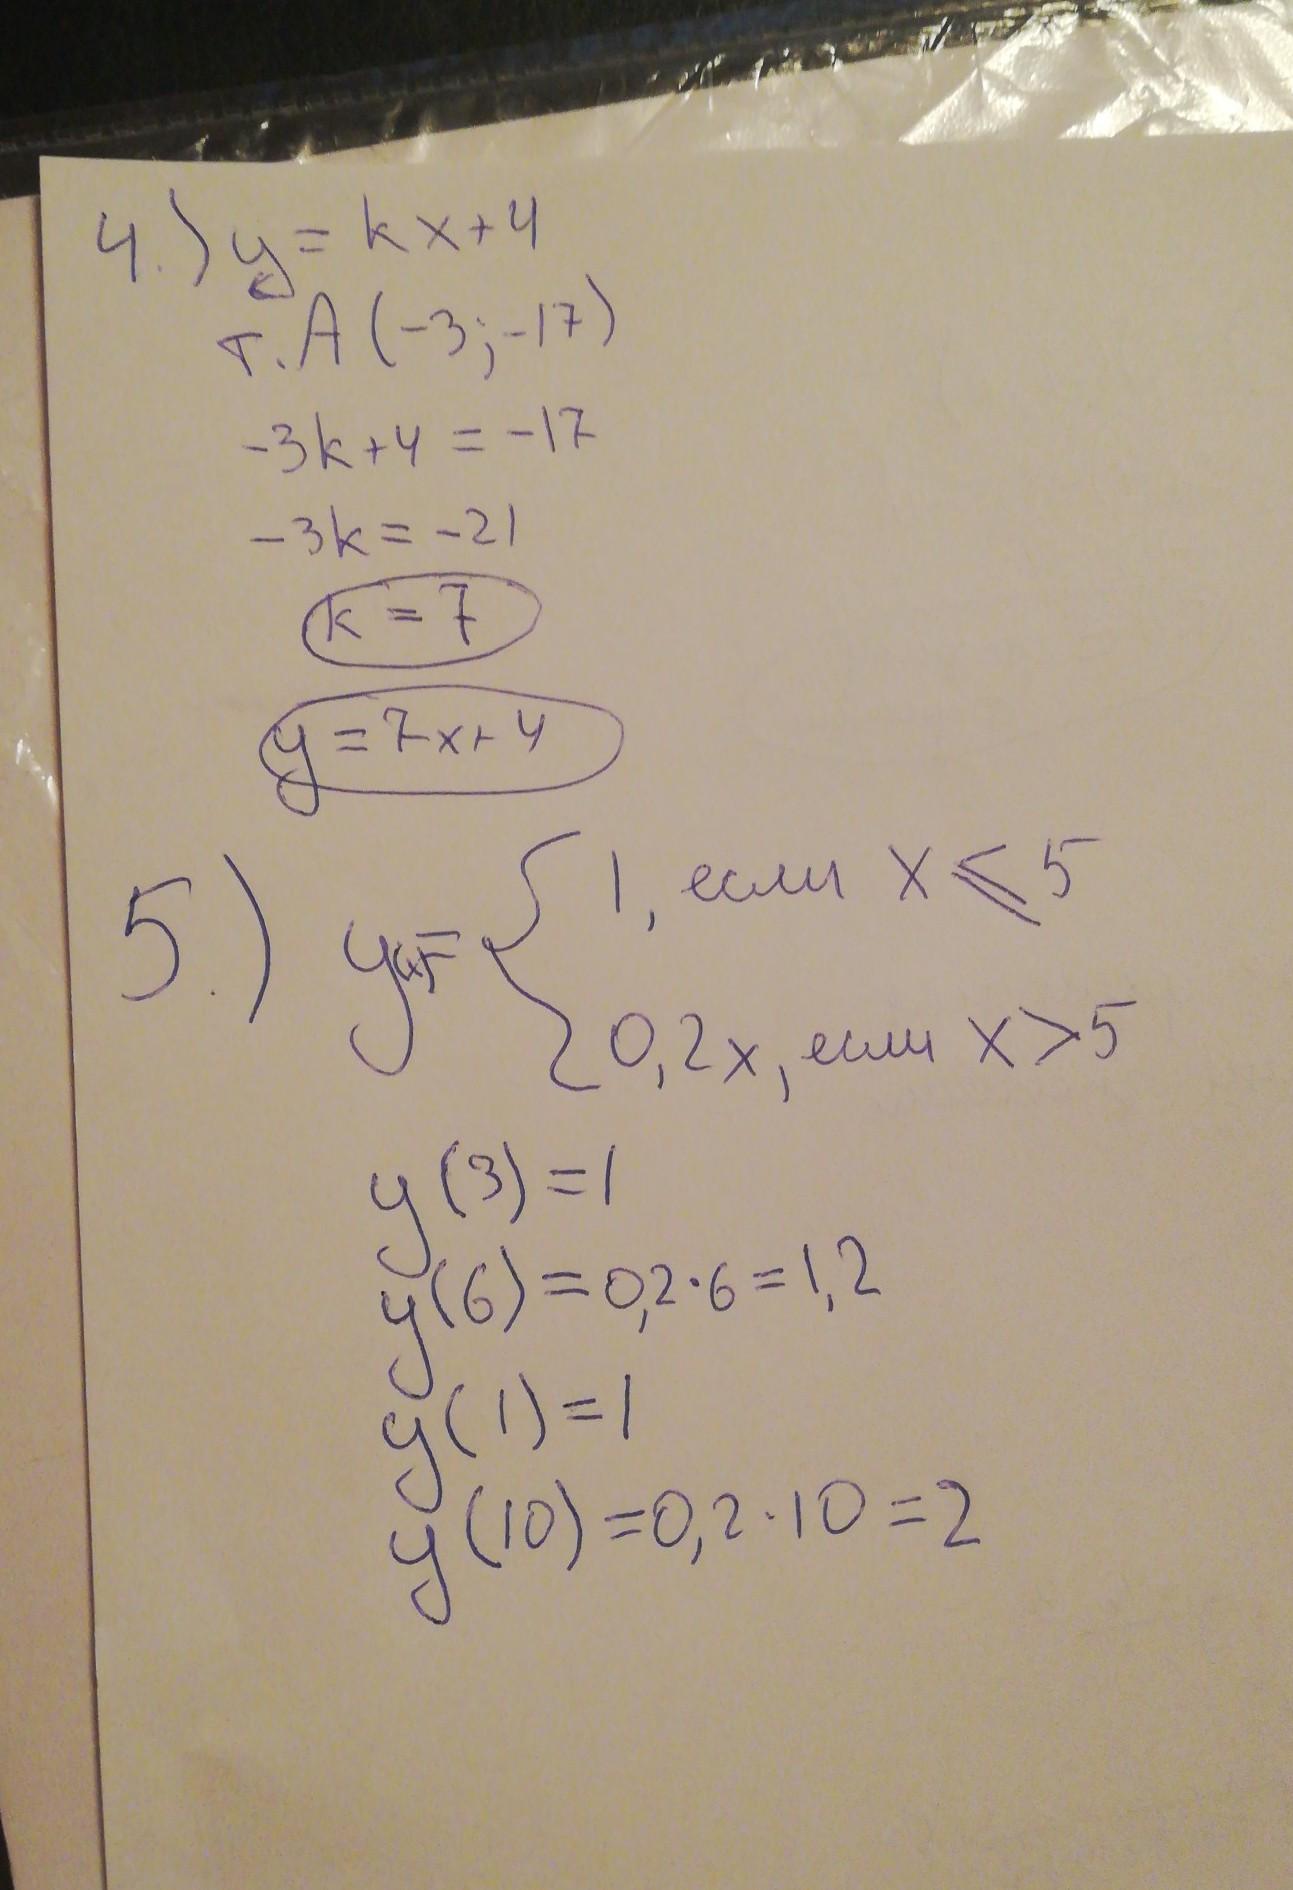 4.) y = kx+4
т. А (-3; -17)
-3k+4 = -17
-3k = -21
k = 7
y = 7x+4
5.) y(x) = { 1, если x ⩽ 5
0,2x, если x > 5
y(3) = 1
y(6) = 0,2·6 = 1,2
y(1) = 1
y(10) = 0,2·10 = 2